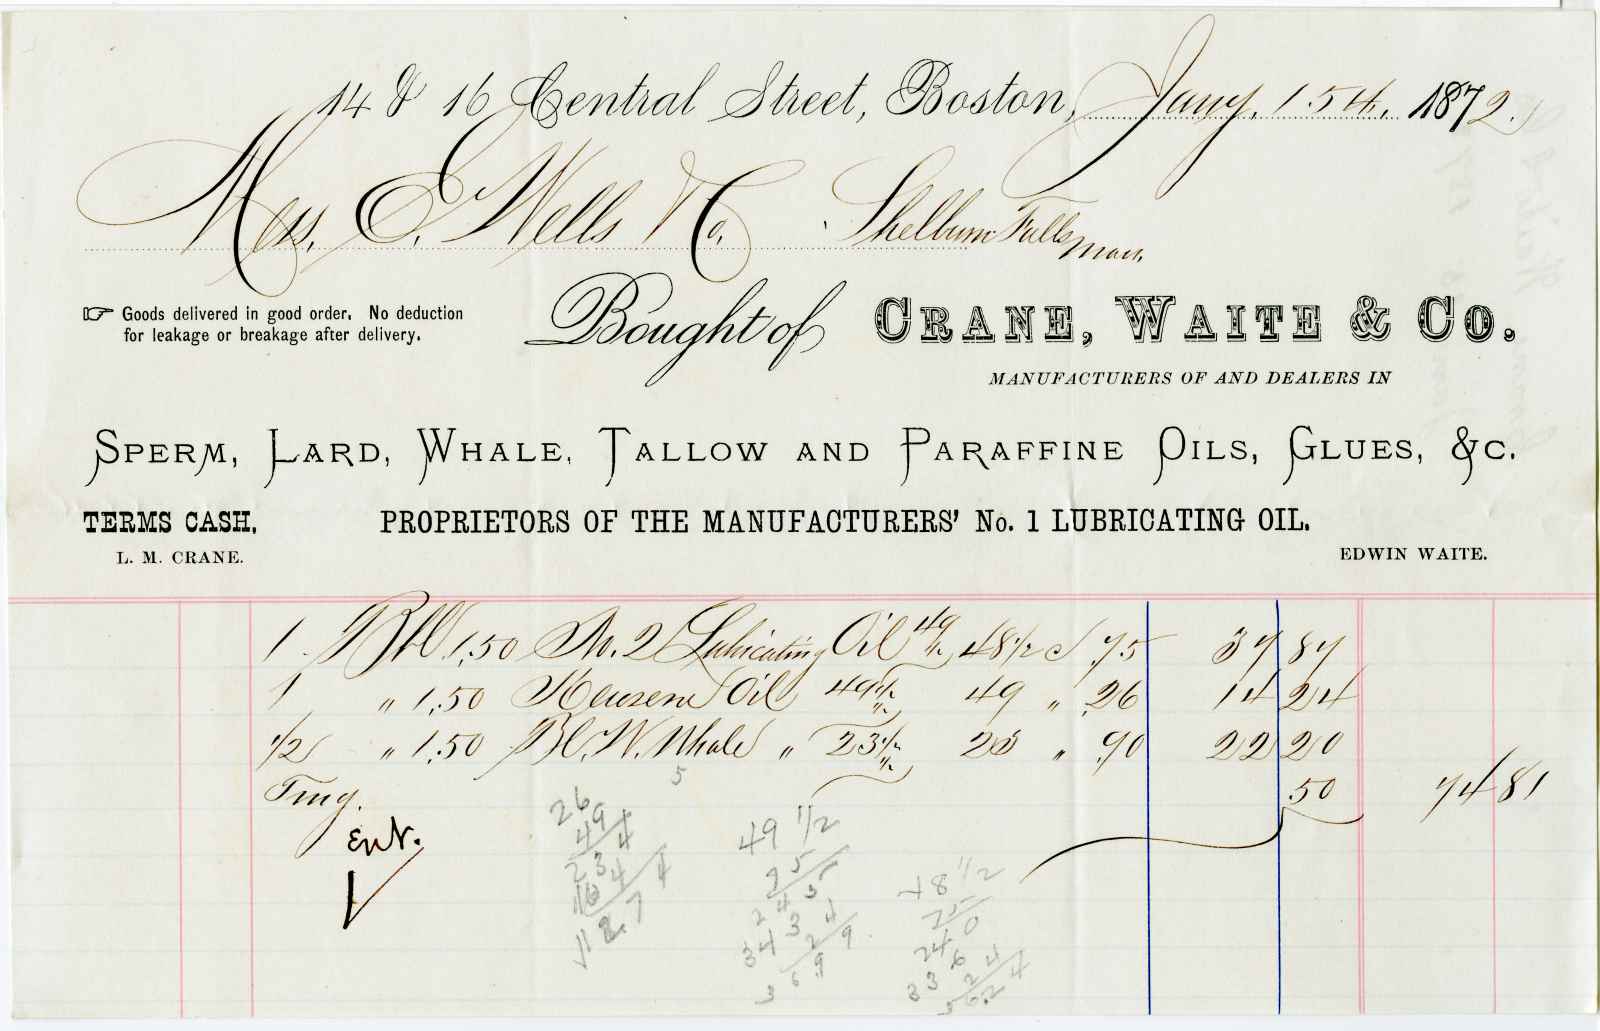 14 & 16 Central Street, Boston, Jany. 15th. 1872.
Mess. E. Wells & Co. Shelburn Falls Mass.
☞ Goods delivered in good order. No deduction
for leakage or breakage after delivery.
Bought of CRANE, WAITE & CO.
MANUFACTURERS OF AND DEALERS IN
SPERM, LARD, WHALE, TALLOW AND PARAFFINE OILS, GLUES, &C.
TERMS CASH. PROPRIETORS OF THE MANUFACTURERS' No. 1 LUBRICATING OIL.
L. M. CRANE. EDWIN WAITE.
1 Bbl 1.50 No. 2 Lubricating Oil 49 48½ c .75 37 87
1 " 1.50 Kerosene Oil 49½ 49 " .26 14 24
1/2 " 1.50 Bl. W. Whale " 23½ 23 " .90 22 20
Trug. .50 74 81
Ent.
5
26
49
234
49 1/2
75
48 1/2
75